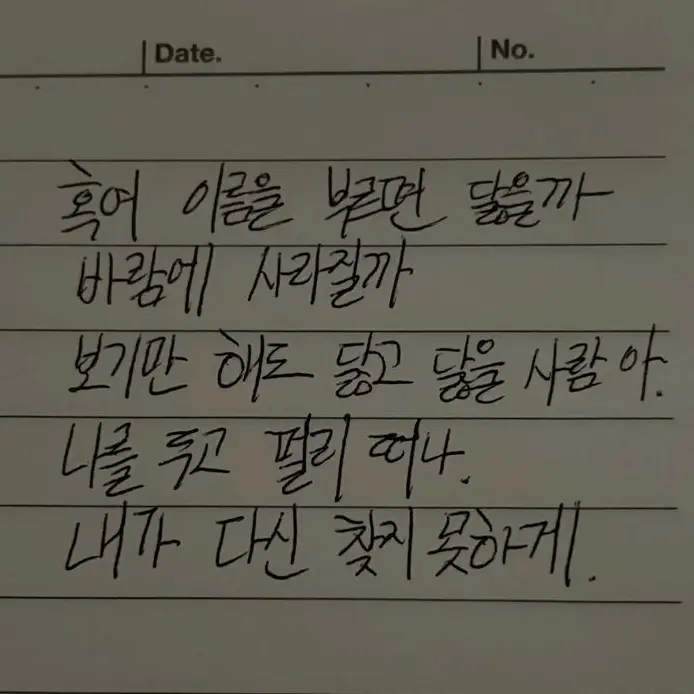 Date. No.
혹여 이름을 부르면 닳을까
바람에 사라질까
보기만 해도 닳고 닳을 사람아.
나를 두고 멀리 떠나.
내가 다신 찾지 못하게.